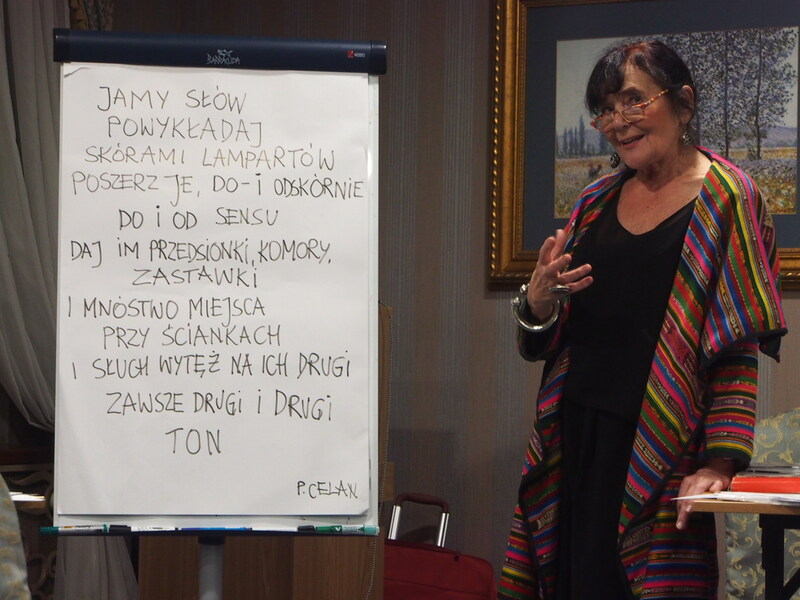 BARRACUDA
JAMY SŁÓW
POWYKŁADAJ
SKÓRAMI LAMPARTÓW
POSZERZ JE, DO- I ODSKÓRNIE
DO I OD SENSU
DAJ IM PRZEDSIONKI, KOMORY,
ZASTAWKI
I MNÓSTWO MIEJSCA
PRZY ŚCIANKACH
I SŁUCH WYTĘŻ NA ICH DRUGI
ZAWSZE DRUGI I DRUGI
TON
P. CELAN